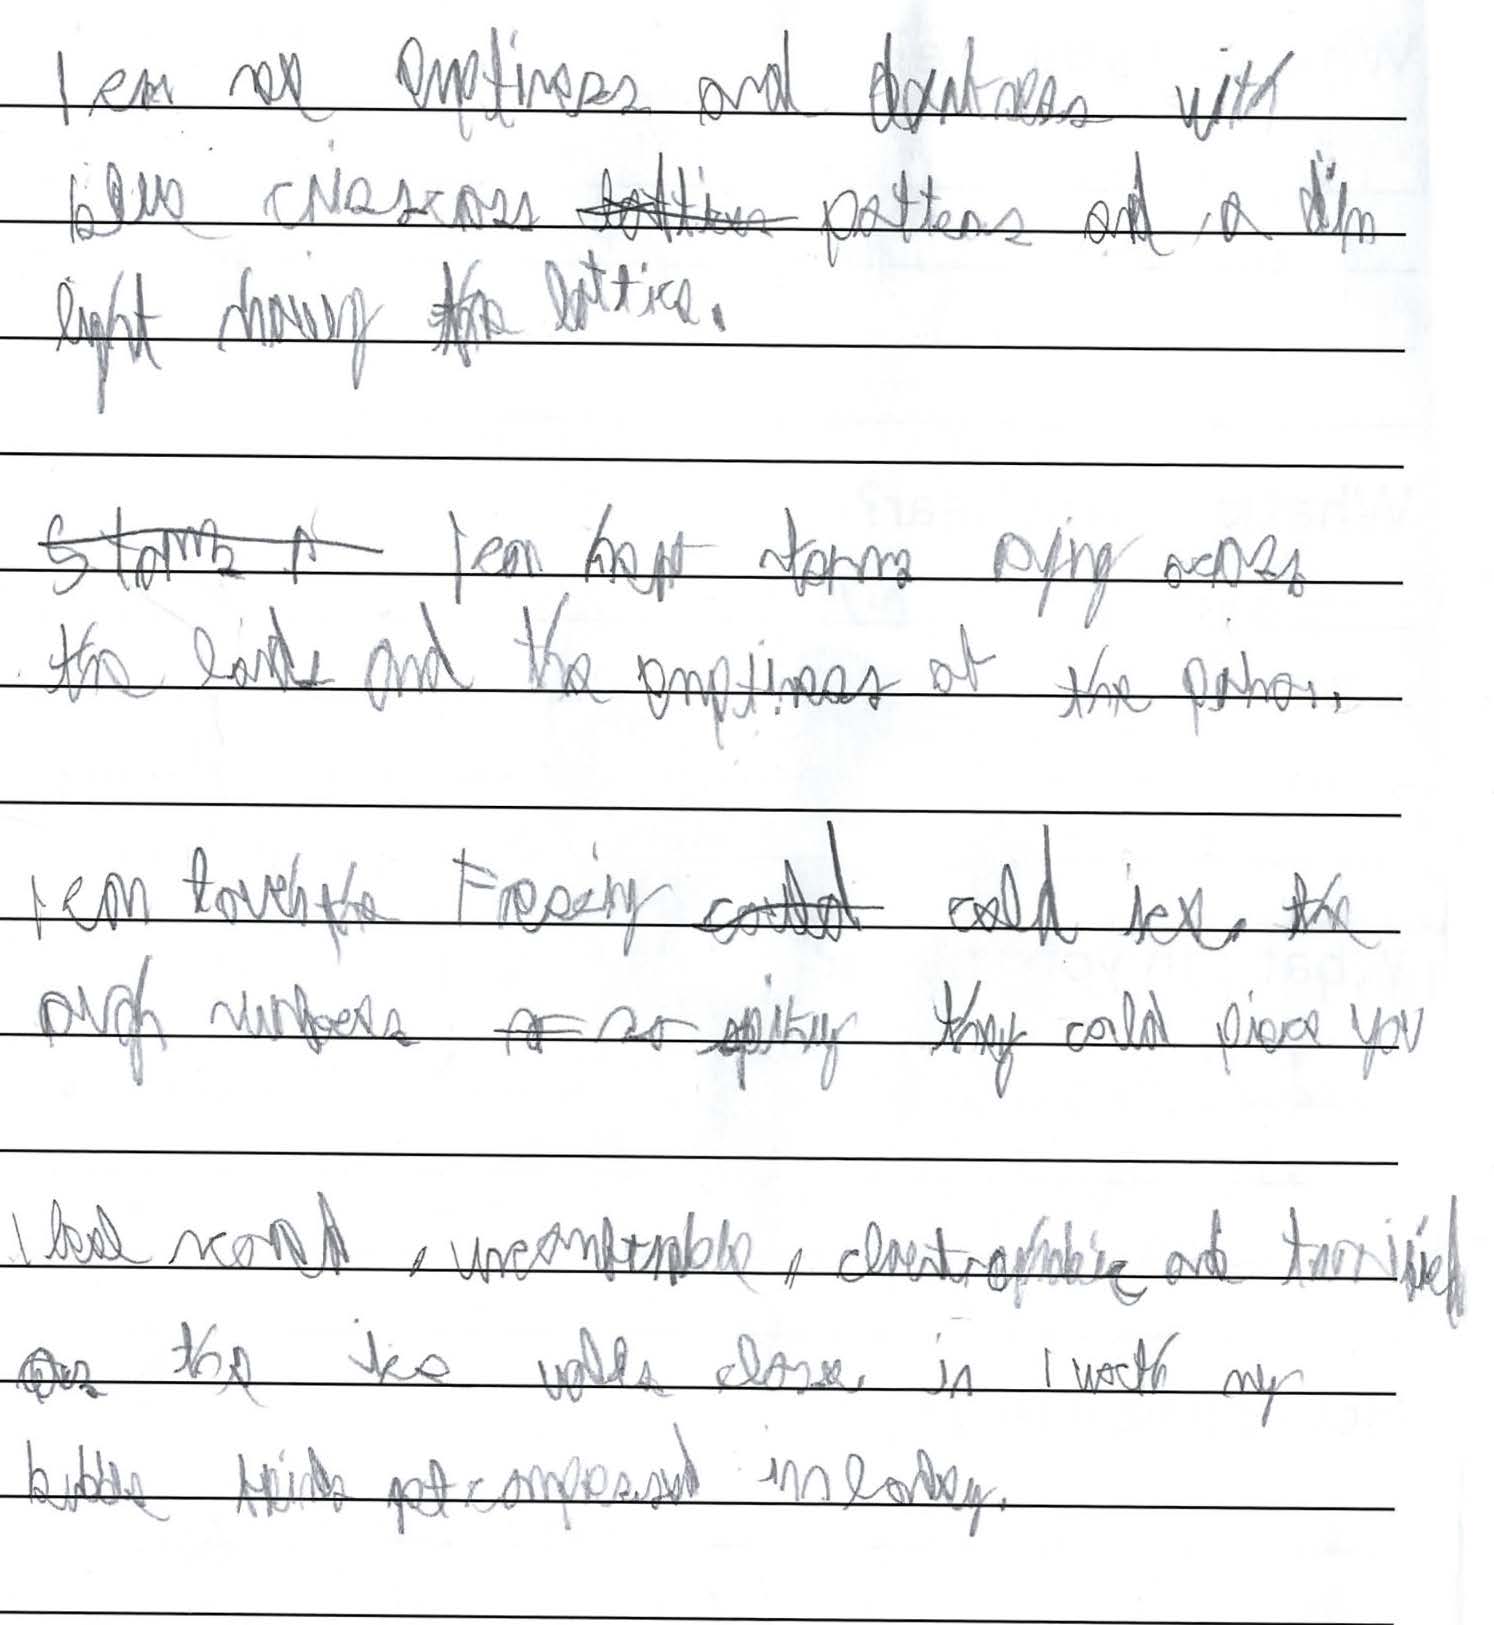 I can see emptiness and darkness with
blue criss cross lattice patterns and a dim
light showing the lattice.
Storms I can hear storms crying across
the lands and the emptiness of the
I can touch the Freezing cold ice. the
rough surfaces so spiky they could pierce you
I feel scared, uncomfortable, claustrophobic and terrified
as the ice walls close in I watch my
bubble get compressed